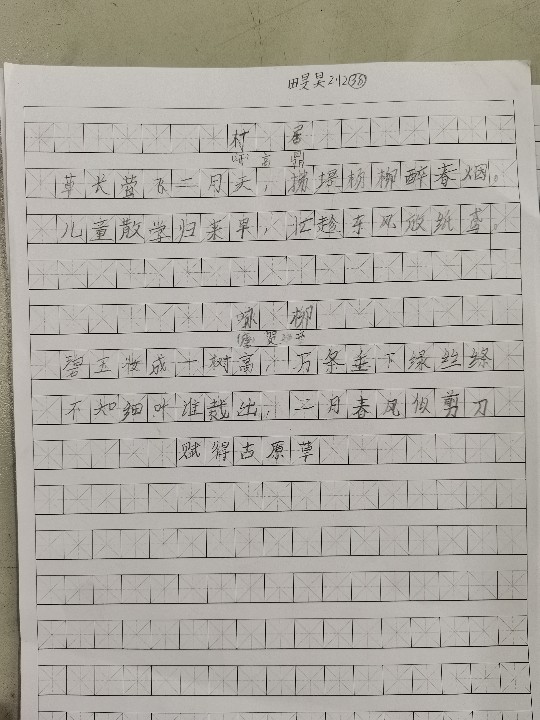 田旻昊212㊱
村居
高鼎
草长莺飞二月天，拂堤杨柳醉春烟。
儿童散学归来早，忙趁东风放纸鸢。
咏柳
唐 贺
碧玉妆成一树高，万条垂下绿丝绦
不知细叶谁裁出，二月春风似剪刀
赋得古原草